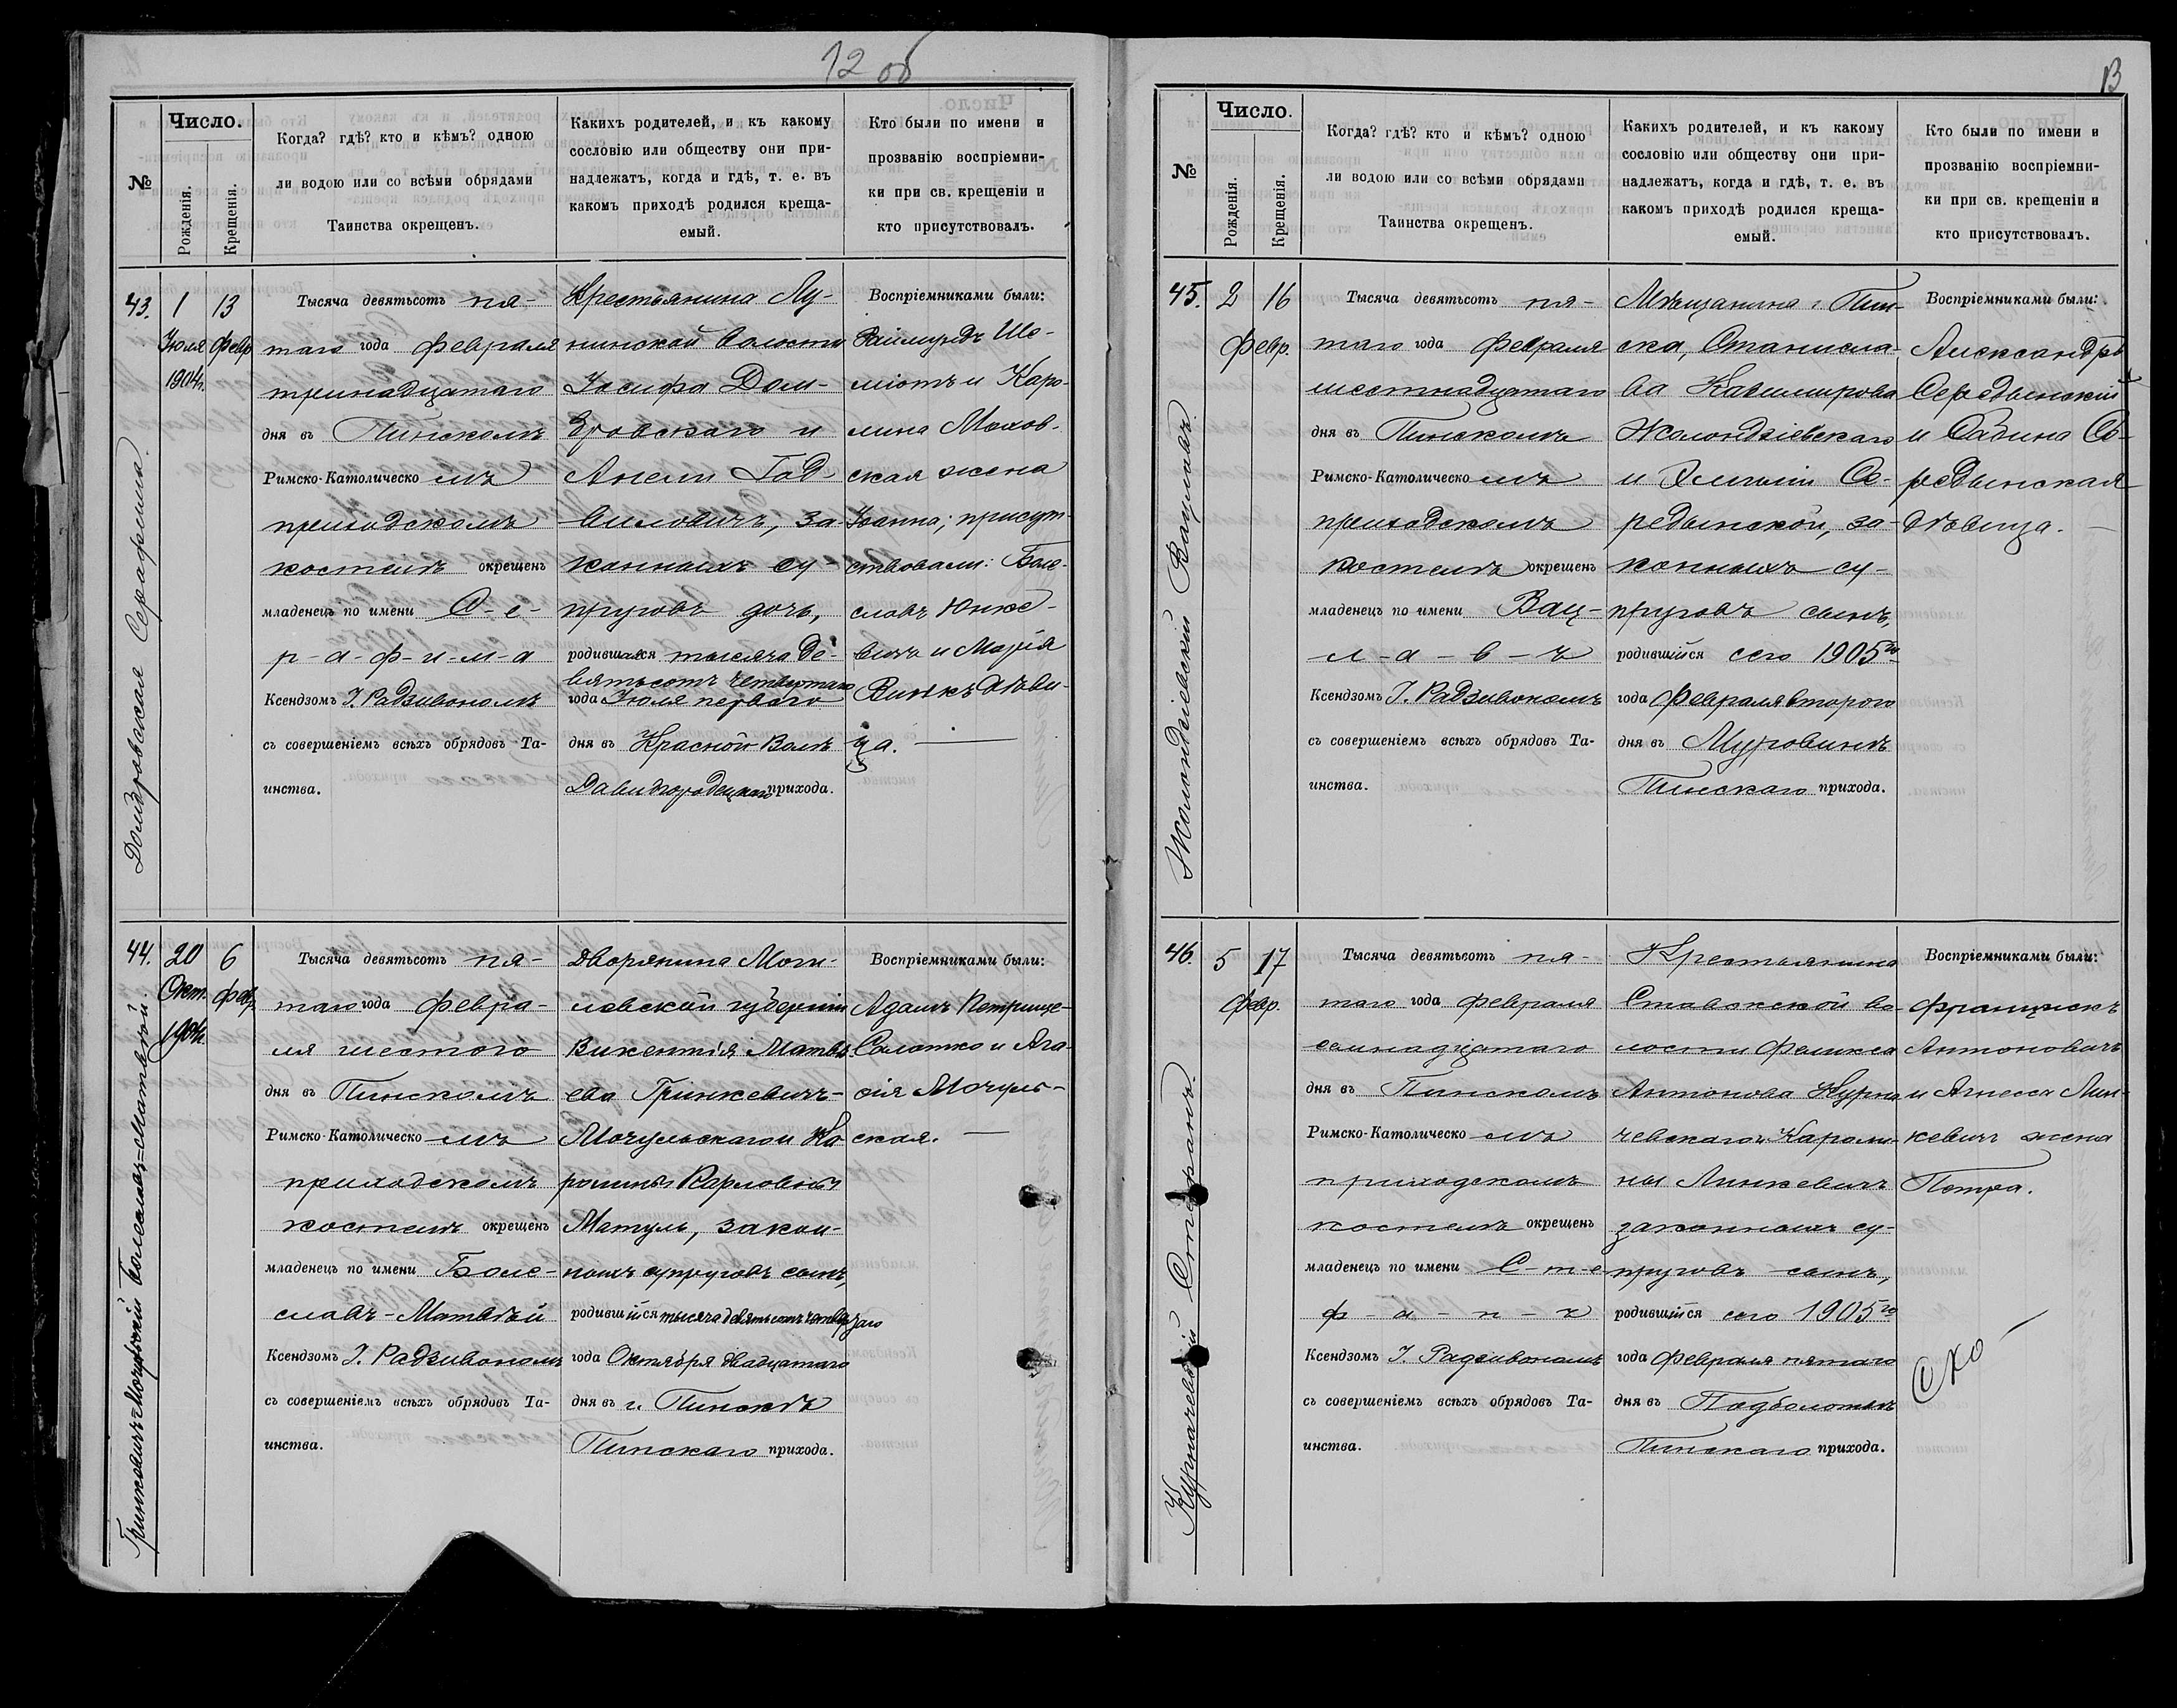 12 об
Число.
№
Рожденія.
Крещенія.
Когда? гдѣ? кто и кѣмъ? одною
ли водою или со всѣми обрядами
Таинства окрещенъ.
Какихъ родителей, и къ какому
сословію или обществу они при-
надлежатъ, когда и гдѣ, т. е. въ
какомъ приходѣ родился креща-
емый.
Кто были по имени и
прозванію воспріемни-
ки при св. крещеніи и
кто присутствовалъ.
43.
Домбровская Серафима.
1
Іюля
1904г.
13
Февр
Тысяча девятьсотъ пя-
таго года Февраля
тринадцатаго
дня въ Пинскомъ
Римско-Католическомъ
приходскомъ
костелѣ окрещенъ
младенецъ по имени С-е-
р-а-ф-и-м-а
Ксендзомъ І. Радзивономъ
съ совершеніемъ всѣхъ обрядовъ Та-
инства.
Крестьянина Лу-
нинской волости
Іосифа Дом-
бровскаго и
Анели Гад-
виловичъ, за-
конныхъ су-
пруговъ дочь,
родившаяся тысяча де-
вятьсотъ четвертаго
года Іюля перваго
дня въ Красной Волѣ
Давидгородецкаго прихода.
Воспріемниками были:
Раймундъ Ше-
міотъ и Каро-
лина Махов-
ская жена
Іоанна; присут-
ствовали: Боле-
славъ Юнке-
вичъ и Марія
Винкъ дѣви-
ца.
44.
Гринкевичъ-Мочульскій Болеславъ-Матвѣй.
20
Окт.
1904г.
6
Февр
Тысяча девятьсотъ пя-
таго года Февра-
ля шестого
дня въ Пинскомъ
Римско-Католическомъ
приходскомъ
костелѣ окрещенъ
младенецъ по имени Боле-
славъ-Матвѣй
Ксендзомъ І. Радзивономъ
съ совершеніемъ всѣхъ обрядовъ Та-
инства.
Дворянина Моги-
левской губерніи
Викентія Матвѣ-
ева Гринкевичъ-
Мочульскаго и Ка-
ролины Карловны
Матуль, закон-
ныхъ супруговъ сынъ,
родившійся тысяча девятьсотъ четвертаго
года Октября двадцатаго
дня въ г. Пинскѣ
Пинскаго прихода.
Воспріемниками были:
Адамъ Петрище-
Солотко и Ага-
сія Мочуль-
ская.
13
Число.
№
Рожденія.
Крещенія.
Когда? гдѣ? кто и кѣмъ? одною
ли водою или со всѣми обрядами
Таинства окрещенъ.
Какихъ родителей, и къ какому
сословію или обществу они при-
надлежатъ, когда и гдѣ, т. е. въ
какомъ приходѣ родился креща-
емый.
Кто были по имени и
прозванію воспріемни-
ки при св. крещеніи и
кто присутствовалъ.
45.
Жолондзіевскій Вацлавъ.
2
16
Февр.
Тысяча девятьсотъ пя-
таго года Февраля
шестнадцатаго
дня въ Пинскомъ
Римско-Католическомъ
приходскомъ
костелѣ окрещенъ
младенецъ по имени Вац-
л-а-в-ъ
Ксендзомъ І. Радзивономъ
съ совершеніемъ всѣхъ обрядовъ Та-
инства.
Мѣщанина г. Пин-
ска, Станисла-
ва Казимирова
Жолондзіевскаго
и Эмиліи Се-
редынской, за-
конныхъ су-
пруговъ сынъ,
родившійся сего 1905го
года Февраля второго
дня въ Муровинѣ
Пинскаго прихода.
Воспріемниками были:
Александръ
Середынскій
и Сабина Се-
редынская
дѣвица.
46.
Курначевскій Стефанъ.
5
17
Февр.
Тысяча девятьсотъ пя-
таго года Февраля
семнадцатаго
дня въ Пинскомъ
Римско-Католическомъ
приходскомъ
костелѣ окрещенъ
младенецъ по имени С-т-е-
ф-а-н-ъ
Ксендзомъ І. Радзивономъ
съ совершеніемъ всѣхъ обрядовъ Та-
инства.
Крестьянина
Ставокской во-
лости Феликса
Антонова Курна-
чевскаго и Кароли-
ны Линкевичъ
законныхъ су-
пруговъ сынъ,
родившійся сего 1905го
года Февраля пятаго
дня въ Подболотьѣ
Пинскаго прихода.
Воспріемниками были:
Францискъ
Антоновичъ
и Агнесса Лин-
кевичъ жена
Петра.